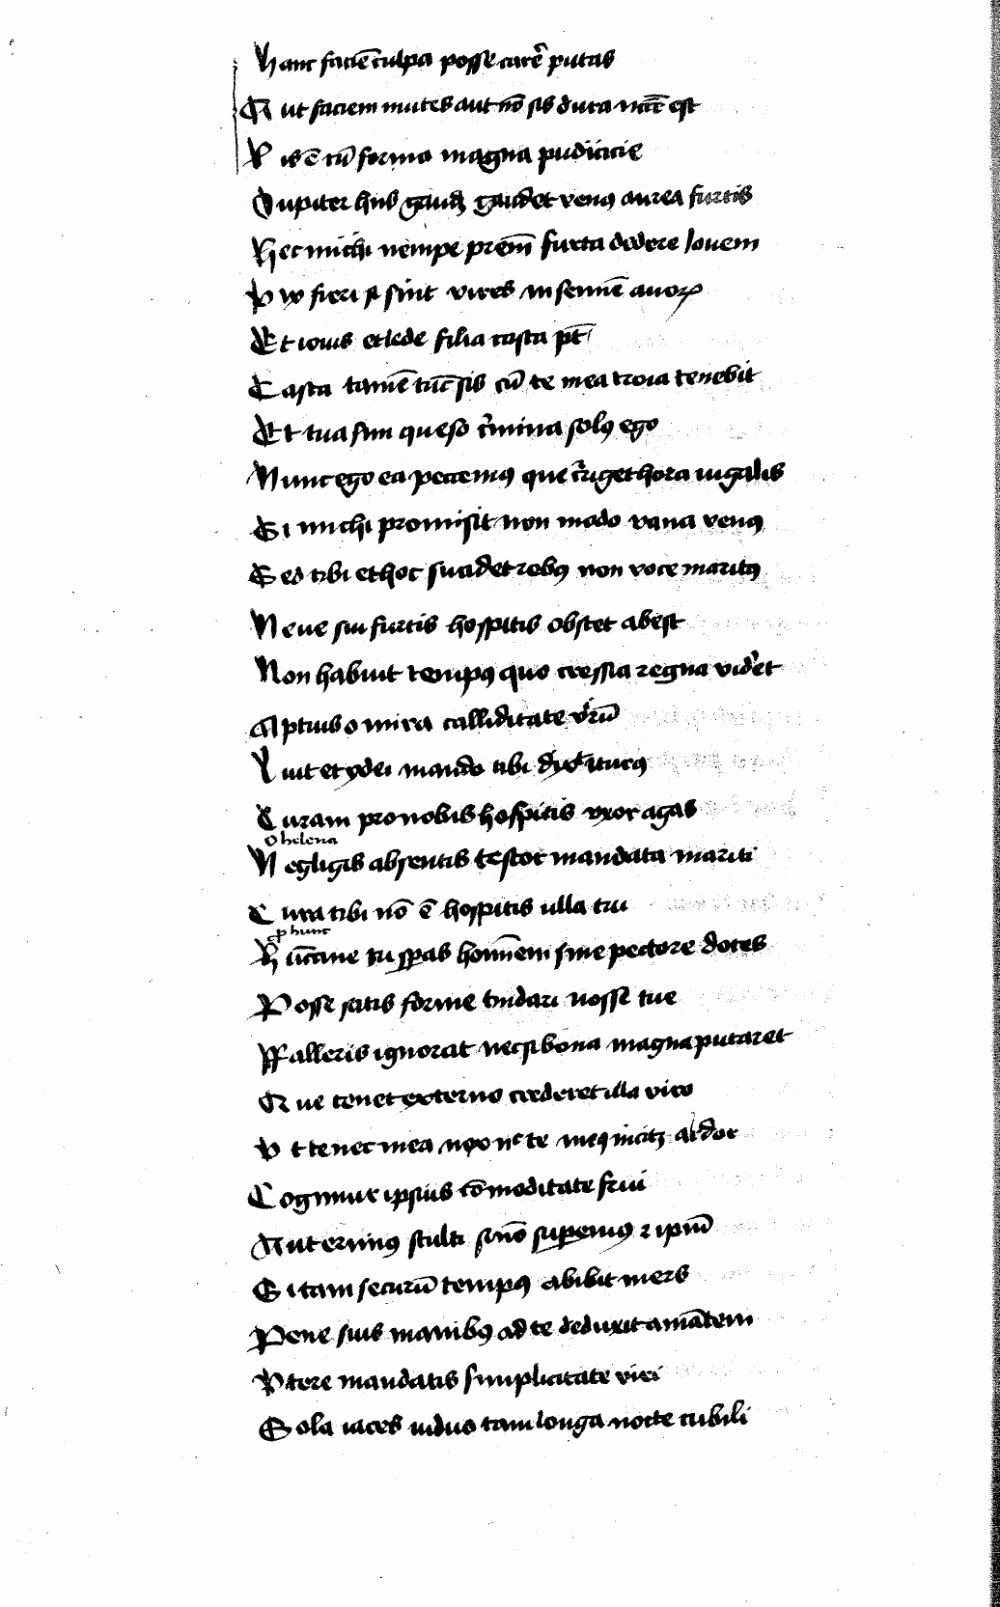 Hanc faciē culpa posse carer̄ putas
Aut faciem mutes aut nō sis dura necē est
Lis ē cū forma magna pudicicie
Jupiter hijs gaudꝫ gaudet venꝰ aurea furtis
Hec michi nempe prem̄ furta dedere Iouem
Vix fieri si sint vires in semīe auoꝝ
Et iouis et lede filia casta pt̄
Casta tamē tūc sis cū te mea troia tenebit
Et tua sim queso cͥmina solꝰ ego
Nunc ego ea peccemꝰ que coͬriget hora iugalis
Si michi promisit non modo vana venꝰ
Sed tibi et hoc suadet rebꝰ non voce maritꝰ
Neue sui furtis hospitis obstet abest
Non habuit tempꝰ quo cressia regna videͬt
Aptius o mira calliditate vͥrū
Iuit et ydei mando tibi dixͭ iturꝰ
Curam pro nobis hospitis vxor agas
o helena
Negligis absentis testor mandata mariti
Cura tibi nō ē hospitis ulla tui
.p hunc
Hūccine tu sꝑas homīem sine pectore dotes
Posse satis forme tindari nosse tue
Falleris ignorat nec si bona magna putaret
Que tenet externo crederet illa viro
Vt te nec mea vox nͨ te meꝰ incitꝫ ardor
Cogimur ipsius cōmoditate frui
Aut erimꝰ stulti si nō suꝑemꝰ ⁊ ipm̄
Si tam securū tempꝰ abibit iners
Pene suis manibꝰ ad te deduxit amātem
Vtere mandatis simplicitate viri
Sola iaces viduo tam longa nocte cubili